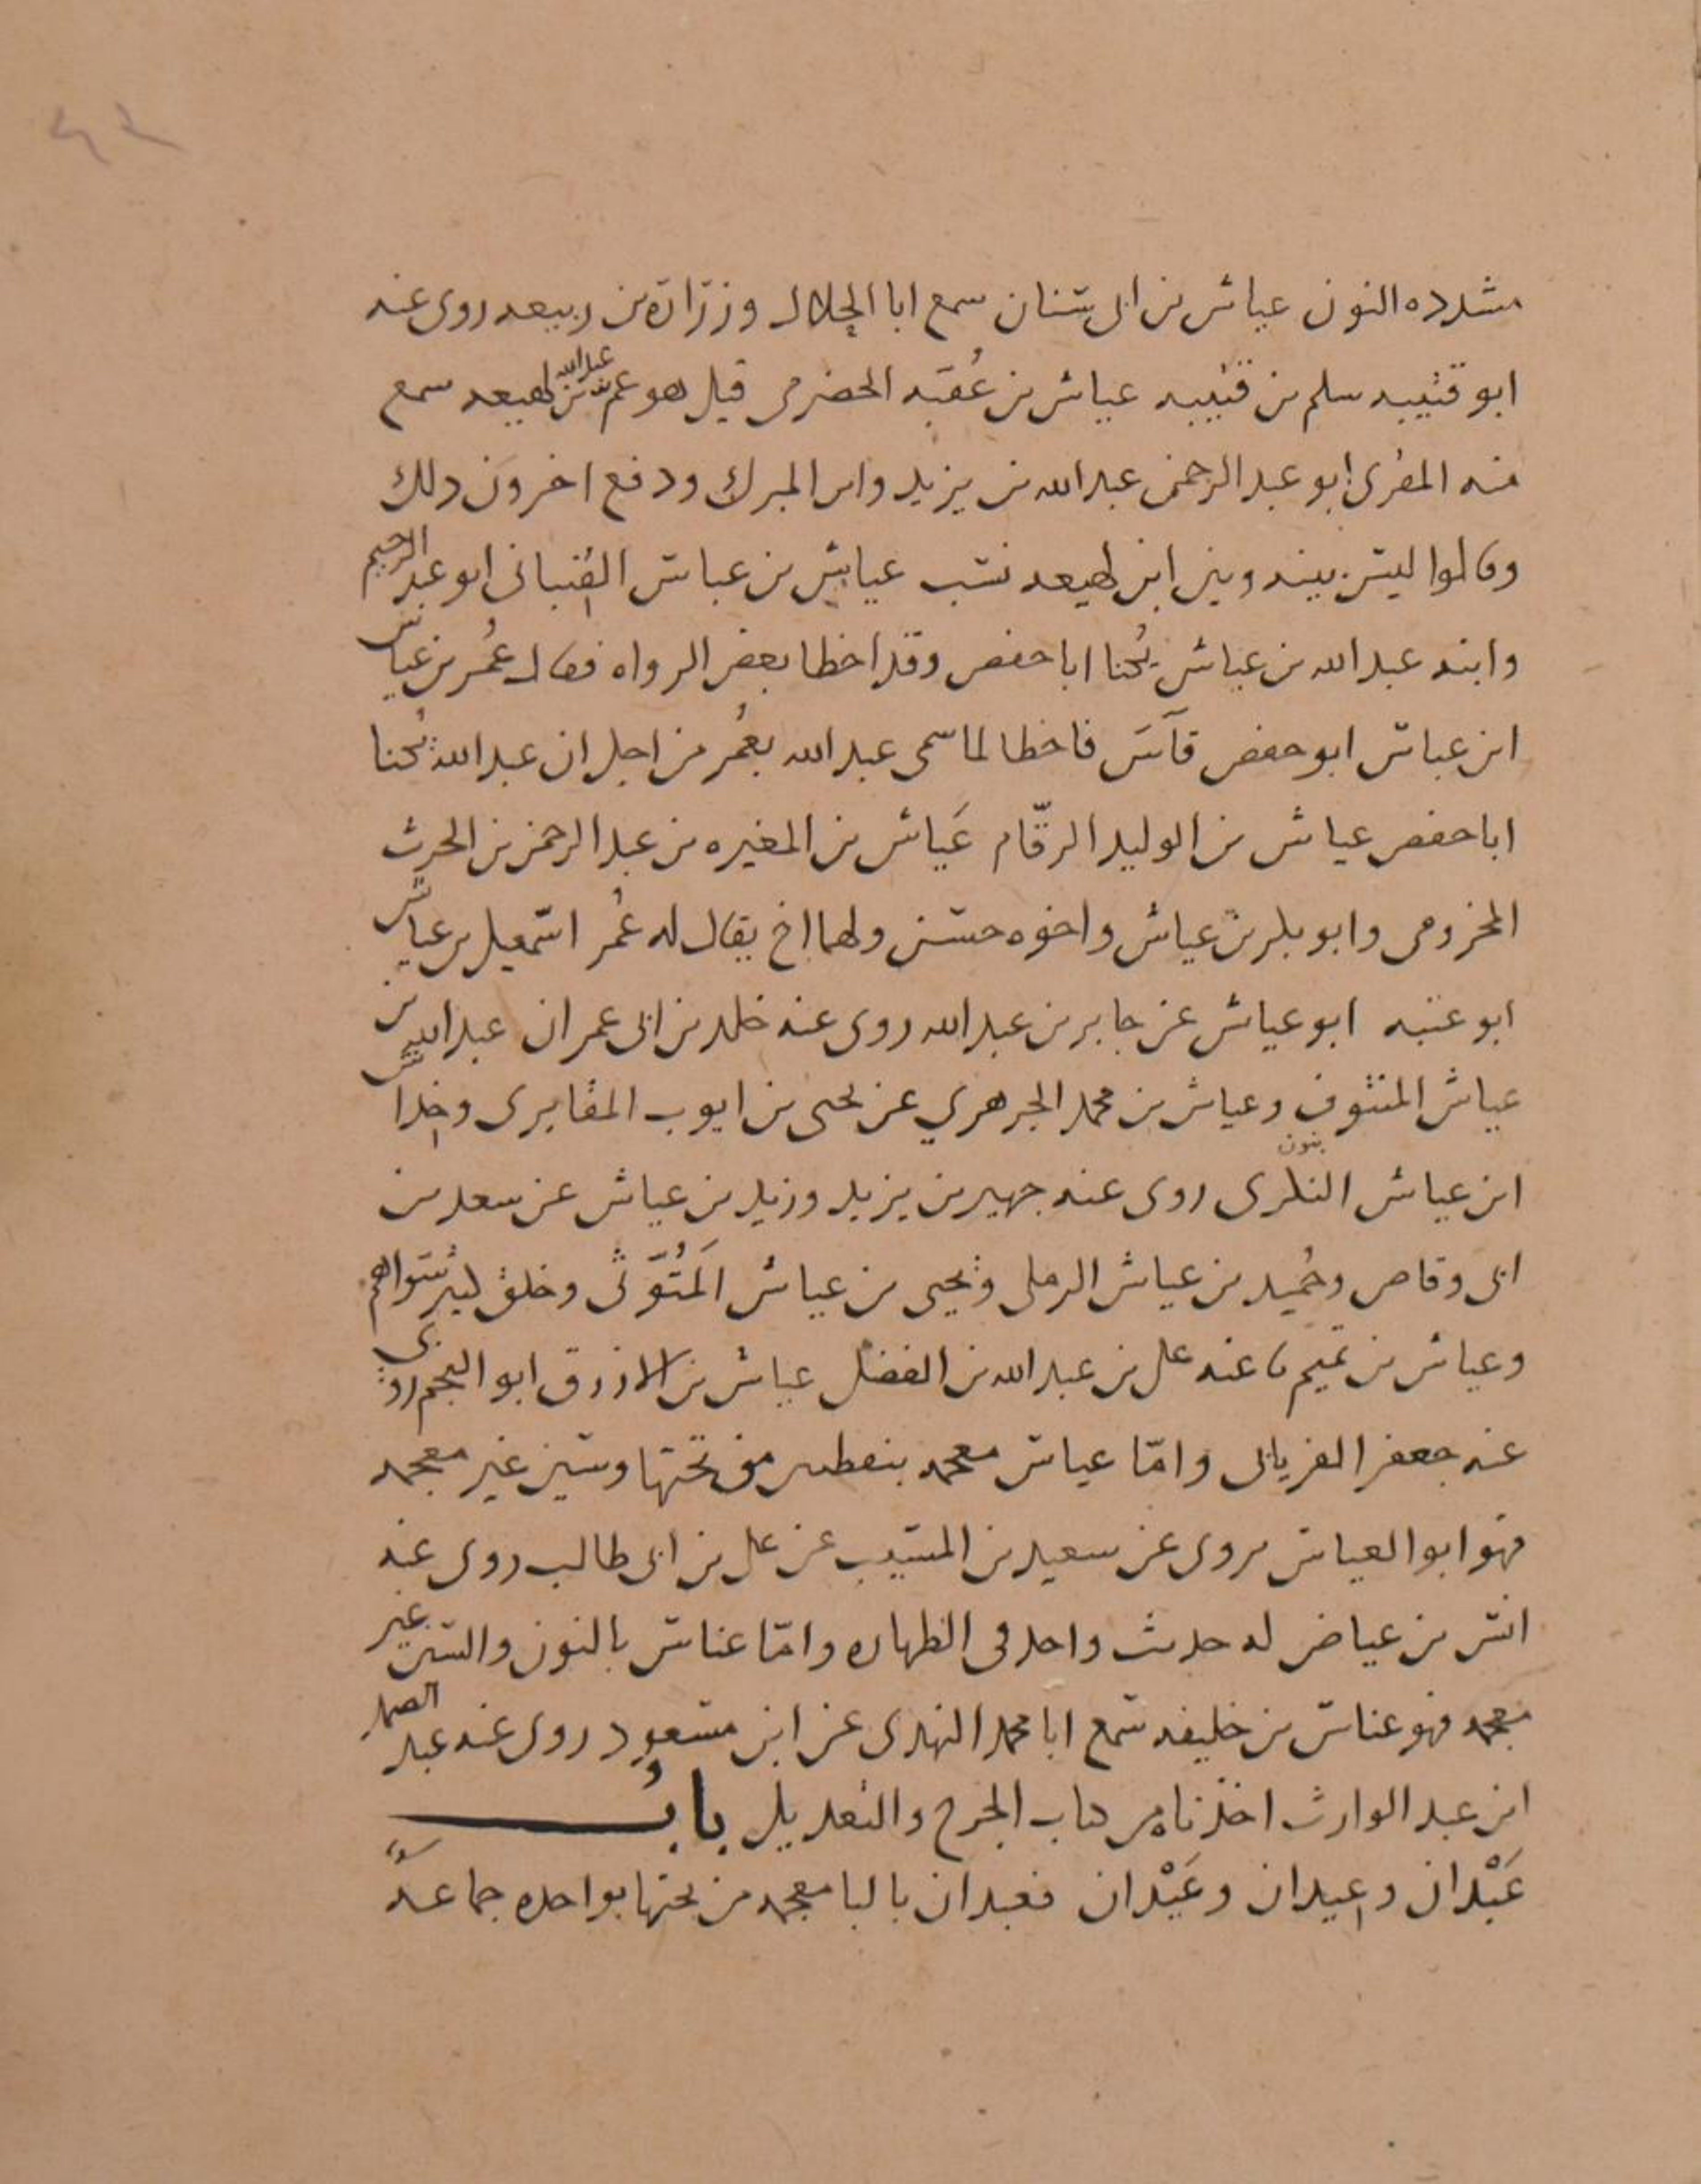 ٤٢
مشدده النون عياش بن ابى سنان سمع ابا الجلال وزرارة بن ربيعه روى عنه
ابو قتيبه سلم بن قتيبه عياش بن عُقبه الحضرمى قيل هو عم عبد الله بن لهيعه سمع
منه المقرى ابو عبد الرحمن عبد الله بن يزيد وابن المبرك ودفع اخرون ذلك
وقالوا ليس بينه وبين ابن لهيعه نسب عياش بن عباس القتبانى ابو عبد الرحيم
وابنه عبد الله بن عياش يُكنا ابا حفص وقد اخطا بعض الرواه فقال عُمر بن عياش
ابن عباس ابو حفص قاس فاخطا لما سمى عبد الله بعُمر من اجل ان عبد الله يُكنا
ابا حفص عياش بن الوليد الرقّام عَياش بن المغيره بن عبد الرحمن بن الحرث
المخزومى وابو بكر بن عياش واخوه حسن ولهما اخ يقال له عُمر اسمعيل بن عياش
ابو عتبه ابو عياش عن جابر بن عبد الله روى عنه خلد بن ابى عمران عبد الله بن
عياش المنتوف وعياش بن محمد الجوهري عن يحيى بن ايوب المقابرى وخداش
ابن عياش النكرى بنون روى عنه جهير بن يزيد وزيد بن عياش عن سعد بن
ابى وقاص وحُميد بن عياش الرملى ويحيى بن عياش المَتُّوثى وخلق ليس سواهم
وعياش بن تميم نا عنه على بن عبد الله بن الفضل عياش بن الازرق ابو النجم روى
عنه جعفر الفريابى وامّا عياس معجمه بنقطتين من تحتها وسين غير معجمه
فهو ابو العياس يروى عن سعيد بن المسيب عن على بن ابى طالب روى عنه
انس بن عياض له حديث واحد فى الطهاره وامّا عناس بالنون والسين غير
معجمه فهو عناس بن خليفه سمع ابا محمد النهدى عن ابن مسعود روى عنه عبد الصمد
ابن عبد الوارث اخذناه من كتاب الجرح والتعديل بابُ
عَبْدان وعيدان وعَيْدان فعبدان بالبا معجمه من تحتها بواحده جماعةٌ